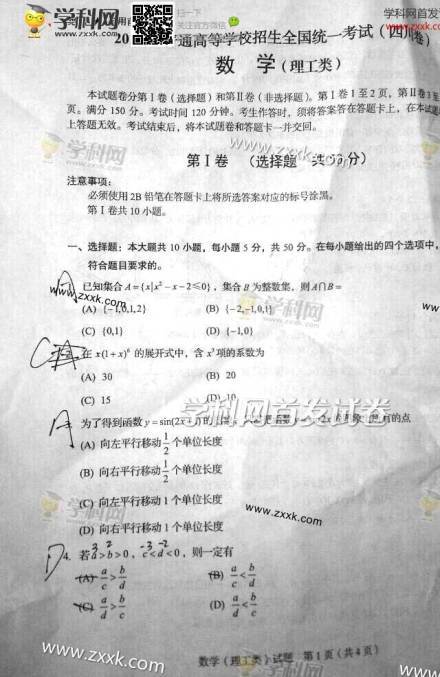 学科网 www.zxxk.com
扫一下
关注官方微信
学科网首发
www.zxxk.com
20 通高等学校招生全国统一考试(四川卷)
数 学(理工类)
本试题卷分第 I 卷(选择题)和第 II 卷(非选择题)。第 I 卷 1 至 2 页,第 II 卷 3 至
页。满分 150 分。考试时间 120 分钟。考生作答时,须将答案答在答题卡上,在本试
上答题无效。考试结束后,将本试题卷和答题卡一并交回。
第 I 卷 (选择题 共 分)
注意事项:
必须使用 2B 铅笔在答题卡上将所选答案对应的标号涂黑。
第 I 卷共 10 小题。
一、选择题:本大题共 10 小题,每小题 5 分,共 50 分。在每小题给出的四个选项中,
符合题目要求的。
A 已知集合 A={x|x²-x-2≤0},集合 B 为整数集,则 A∩B=
(A) {-1,0,1,2} (B) {-2,-1,0,1}
(C) {0,1} (D) {-1,0}
C 在 x(1+x)⁶ 的展开式中,含 x³ 项的系数为
(A) 30 (B) 20
(C) 15 (D) 10
学科网首发试卷
A 为了得到函数 y=sin(2x+1) 的 的点
(A) 向左平行移动 1/2 个单位长度
(B) 向右平行移动 1/2 个单位长度
(C) 向左平行移动 1 个单位长度
(D) 向右平行移动 1 个单位长度
3 2 -3 -2
D 4. 若 a>b>0,c<d<0,则一定有
(A) a/c>b/d (B) a/c<b/d
(C) a/d>b/c (D) a/d<b/c
数学(理工类)试题 第 1 页(共 4 页)
www.zxxk.com